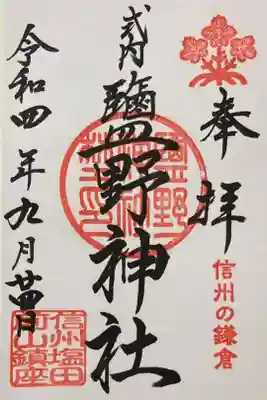 奉拝
信州の鎌倉
式内
鹽野神社
令和四年九月廿四日
信州塩田
山鎮座